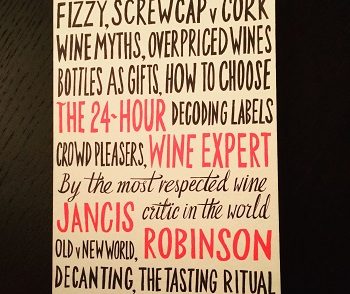 FIZZY, SCREWCAP v CORK
WINE MYTHS, OVERPRICED WINES
BOTTLES AS GIFTS, HOW TO CHOOSE
THE 24-HOUR DECODING LABELS
CROWD PLEASERS, WINE EXPERT
By the most respected wine
JANCIS critic in the world
OLD v NEW WORLD, ROBINSON
DECANTING, THE TASTING RITUAL